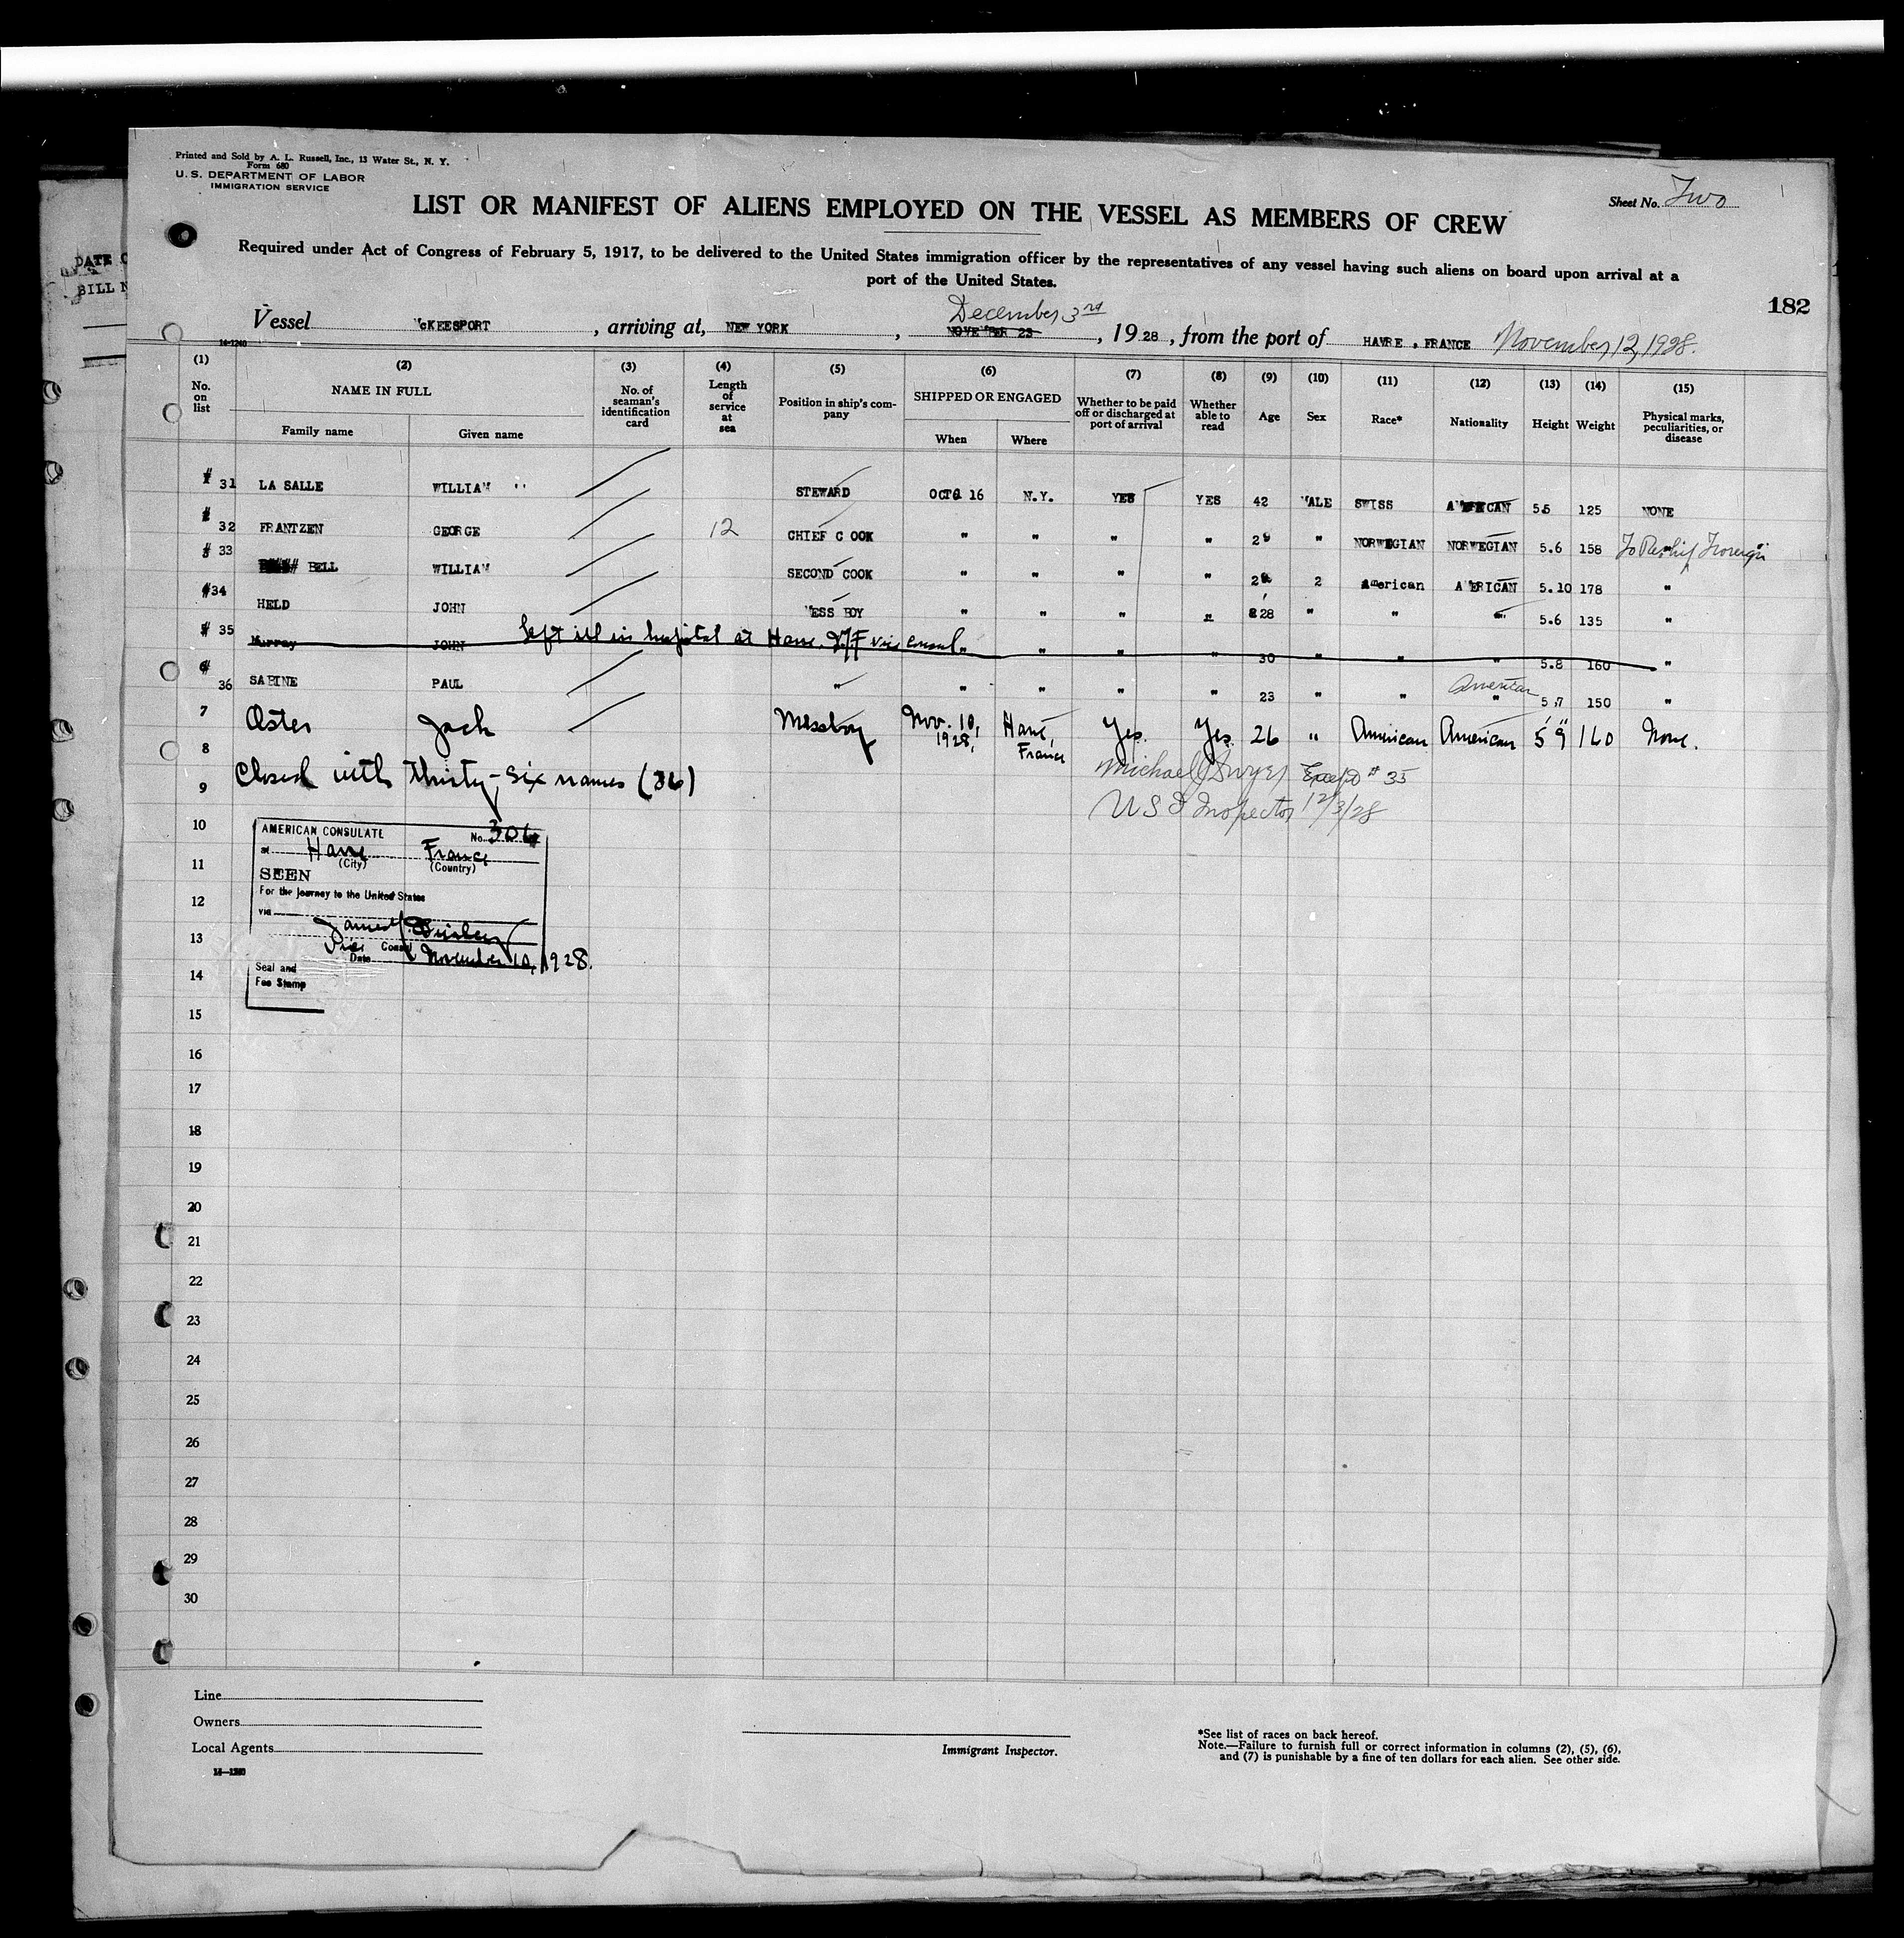 Printed and Sold by A. L. Russell, Inc., 13 Water St., N. Y.
Form 680
U. S. DEPARTMENT OF LABOR
IMMIGRATION SERVICE
Sheet No. Two
LIST OR MANIFEST OF ALIENS EMPLOYED ON THE VESSEL AS MEMBERS OF CREW
Required under Act of Congress of February 5, 1917, to be delivered to the United States immigration officer by the representatives of any vessel having such aliens on board upon arrival at a
port of the United States.
DATE
BILL
182
December 3rd
Vessel McKEESPORT, arriving at, NEW YORK, NOVEMBER 23, 1928, from the port of HAVRE, FRANCE November 12, 1928.
14-1240
(1) (2) (3) (4) (5) (6) (7) (8) (9) (10) (11) (12) (13) (14) (15)
No. on list NAME IN FULL No. of seaman's identification card Length of service at sea Position in ship's company SHIPPED OR ENGAGED Whether to be paid off or discharged at port of arrival Whether able to read Age Sex Race* Nationality Height Weight Physical marks, peculiarities, or disease
Family name Given name When Where
31 LA SALLE WILLIAM STEWARD OCT 16 N.Y. YES YES 42 MALE SWISS AMERICAN 55 125 NONE
32 FRANTZEN GEORGE 12 CHIEF C OOK " " " " " NORWEGIAN NORWEGIAN 5.6 158 To Reship Foreign
33 BELL WILLIAM SECOND COOK " " " " 2 American AMERICAN 5.10 178 "
34 HELD JOHN MESS BOY " " " " 28 " " " 5.6 135 "
35 Murray JOHN left ill in hospital at Havre. vice consul " " " " 30 " " " 5.8 160 "
36 SABINE PAUL " " " " " 23 " " American " 5.7 150 "
7 Oster Jack Messboy Nov. 10, 1928, Havre, France Yes. Yes. 26 " American American 5'9" 160 None.
8 Closed with Thirty-Six names (36) Michael J Dwyer Except # 35
9 U S I Inspector 12/3/28
10
AMERICAN CONSULATE No. 306
at Havre France
(City) (Country)
11
SEEN
For the journey to the United States
12
via
13
Vice Consul
Date November 10, 1928.
Seal and
14
Fee Stamp
15
16
17
18
19
20
21
22
23
24
25
26
27
28
29
30
Line
Owners
Local Agents
14—1240
Immigrant Inspector.
*See list of races on back hereof.
Note.—Failure to furnish full or correct information in columns (2), (5), (6),
and (7) is punishable by a fine of ten dollars for each alien. See other side.